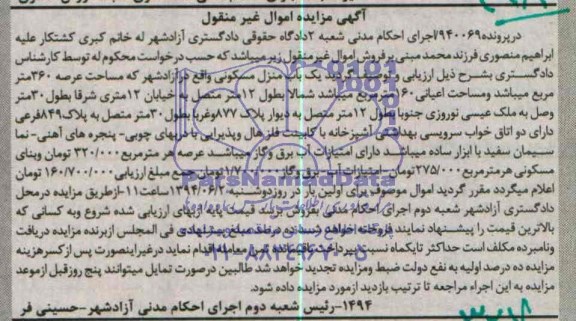 آگهی مزایده اموال غیر منقول
در پرونده ۹۴۰۰۶۹/اجرای احکام مدنی شعبه ۲ دادگاه حقوقی دادگستری آزادشهر له خانم کبری کشتکار علیه
ابراهیم منصوری فرزند محمد مبنی بر فروش اموال غیر منقول زیر میباشد که حسب درخواست محکوم له توسط کارشناس
دادگستری بشسرح ذیل ارزیابی و توصیف گردید یک باب منزل مسکونی واقع در آزادشهر که مساحت عرصه ۳۶۰متر
مربع میباشد ومساحت اعیانی ۱۶۰مترمربع میباشد شمالا بطول ۱۲متر متصل به خیابان ۱۲متری شرقا بطول ۳۰متر
وصل به ملک عیسی نوروزی جنوبا بطول ۱۲متر متصل به دیوار پلاک ۸۷۷وغربا بطول ۳۰متر متصل به پلاک ۸۴۹فرعی
دارای دو اتاق خواب سرویسی بهداشتی آشپزخانه با کابینت فلز هال وپذیرایی با دربهای چوبی- پنجره های آهنی- نما
سسیمان سفید با ابزار ساده میباشد دارای امتیازات آب برق وگاز میباشد عرصه هر مترمربع ۳۲۰/۰۰۰ تومان وبنای
مسکونی هرمترمربع ۲۷۵/۰۰۰تومان-امتیازات آب- برق وگاز تومان جمع مبلغ ارزیابی ۱۶۰/۷۰۰/۰۰۰ تومان
اعلام میگردد مقرر گردید اموال موصوف برای اولین بار در روز دوشنبه ۱۳۹۴/۶/۲ ساعت ۱۱-ازطریق مزایده درمحل
دادگستری آزادشهر شعبه دوم اجرای احکام مدنی بفروش برسد قیمت پایه ازبهای ارزیابی شده شروع وبه کسانی که
بالاترین قیمت را پیشنهاد نمایند فروخته خواهد شد ده درصد مبلغ پیشنهادی فی المجلس ازبرنده مزایده دریافت
ونامبرده مکلف است حداکثر تایکماه نسبت به پرداخت باقیمانده ثمن معامله اقدام نماید درغیراینصورت پس از کسرهزینه
مزایده ده درصد اولیه به نفع دولت ضبط ومزایده تجدید خواهد شد طالبین درصورت تمایل میتوانند پنج روزقبل ازموعد
مزایده به این اجراء مراجعه تا ترتیب بازدید ازمورد مزایده داده شود.
۱۴۹۴-رئیس شعبه دوم اجرای احکام مدنی آزادشهر-حسینی فر